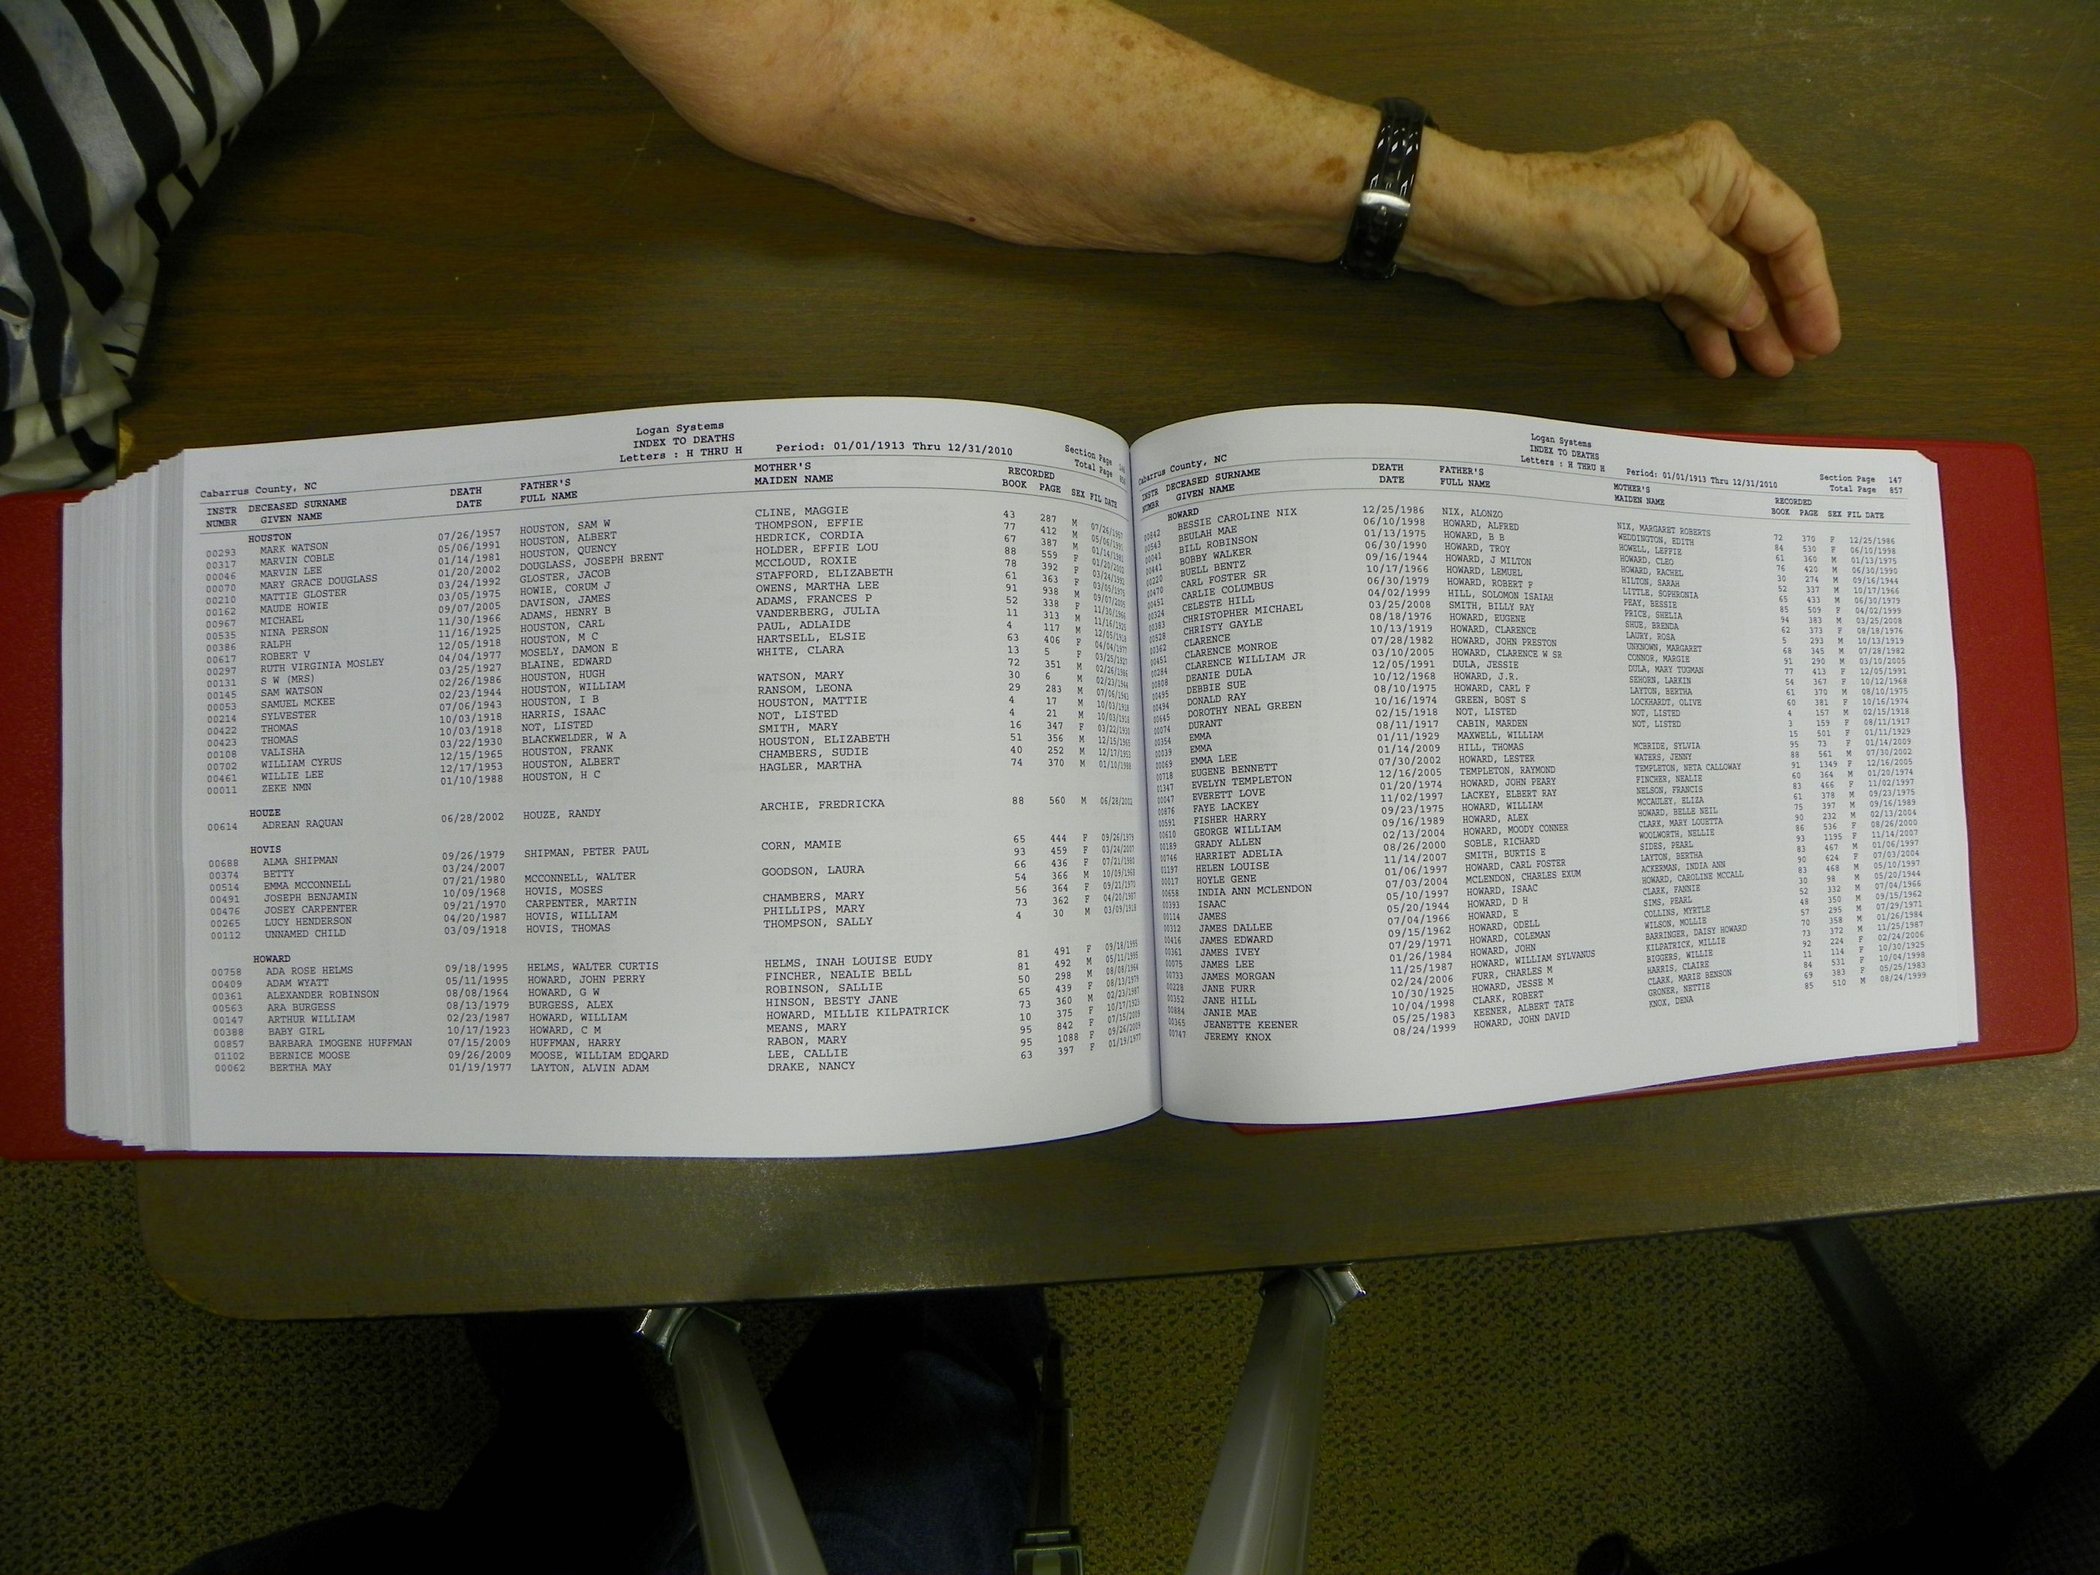 Logan Systems
INDEX TO DEATHS
Cabarrus County, NC Letters : H THRU H Period: 01/01/1913 Thru 12/31/2010 Section Page
Total Page
INSTR DECEASED SURNAME DEATH FATHER'S MOTHER'S RECORDED
NUMBR GIVEN NAME DATE FULL NAME MAIDEN NAME BOOK PAGE SEX FIL DATE
HOUSTON
00293 MARK WATSON 07/26/1957 HOUSTON, SAM W CLINE, MAGGIE 43 287 M 07/26/1957
00317 MARVIN COBLE 05/06/1991 HOUSTON, ALBERT THOMPSON, EFFIE 77 412 M 05/06/1991
00046 MARVIN LEE 01/14/1981 HOUSTON, QUENCY HEDRICK, CORDIA 67 387 M 01/14/1981
00070 MARY GRACE DOUGLASS 01/20/2002 DOUGLASS, JOSEPH BRENT HOLDER, EFFIE LOU 88 559 F 01/20/2002
00210 MATTIE GLOSTER 03/24/1992 GLOSTER, JACOB MCCLOUD, ROXIE 78 392 F 03/24/1992
00162 MAUDE HOWIE 03/05/1975 HOWIE, CORUM J STAFFORD, ELIZABETH 61 363 F 03/05/1975
00967 MICHAEL 09/07/2005 DAVISON, JAMES OWENS, MARTHA LEE 91 938 M 09/07/2005
00535 NINA PERSON 11/30/1966 ADAMS, HENRY B ADAMS, FRANCES P 52 338 F 11/30/1966
00386 RALPH 11/16/1925 HOUSTON, CARL VANDERBERG, JULIA 11 313 M 11/16/1925
00617 ROBERT V 12/05/1918 HOUSTON, M C PAUL, ADLAIDE 4 117 M 12/05/1918
00297 RUTH VIRGINIA MOSLEY 04/04/1977 MOSELY, DAMON E HARTSELL, ELSIE 63 406 F 04/04/1977
00131 S W (MRS) 03/25/1927 BLAINE, EDWARD WHITE, CLARA 13 5 F 03/25/1927
00145 SAM WATSON 02/26/1986 HOUSTON, HUGH 72 351 M 02/26/1986
00053 SAMUEL MCKEE 02/23/1944 HOUSTON, WILLIAM WATSON, MARY 30 6 M 02/23/1944
00214 SYLVESTER 07/06/1943 HOUSTON, I B RANSOM, LEONA 29 283 M 07/06/1943
00422 THOMAS 10/03/1918 HARRIS, ISAAC HOUSTON, MATTIE 4 17 M 10/03/1918
00423 THOMAS 10/03/1918 NOT, LISTED NOT, LISTED 4 21 M 10/03/1918
00108 VALISHA 03/22/1930 BLACKWELDER, W A SMITH, MARY 16 347 F 03/22/1930
00702 WILLIAM CYRUS 12/15/1965 HOUSTON, FRANK HOUSTON, ELIZABETH 51 356 M 12/15/1965
00461 WILLIE LEE 12/17/1953 HOUSTON, ALBERT CHAMBERS, SUDIE 40 252 M 12/17/1953
00011 ZEKE NMN 01/10/1988 HOUSTON, H C HAGLER, MARTHA 74 370 M 01/10/1988
HOUZE
00614 ADREAN RAQUAN 06/28/2002 HOUZE, RANDY ARCHIE, FREDRICKA 88 560 M 06/28/2002
HOVIS
00688 ALMA SHIPMAN 09/26/1979 SHIPMAN, PETER PAUL CORN, MAMIE 65 444 F 09/26/1979
00374 BETTY 03/24/2007 93 459 F 03/24/2007
00514 EMMA MCCONNELL 07/21/1980 MCCONNELL, WALTER GOODSON, LAURA 66 436 F 07/21/1980
00491 JOSEPH BENJAMIN 10/09/1968 HOVIS, MOSES 54 366 M 10/09/1968
00476 JOSEY CARPENTER 09/21/1970 CARPENTER, MARTIN CHAMBERS, MARY 56 364 F 09/21/1970
00265 LUCY HENDERSON 04/20/1987 HOVIS, WILLIAM PHILLIPS, MARY 73 362 F 04/20/1987
00112 UNNAMED CHILD 03/09/1918 HOVIS, THOMAS THOMPSON, SALLY 4 30 M 03/09/1918
HOWARD
00758 ADA ROSE HELMS 09/18/1995 HELMS, WALTER CURTIS HELMS, INAH LOUISE EUDY 81 491 F 09/18/1995
00409 ADAM WYATT 05/11/1995 HOWARD, JOHN PERRY FINCHER, NEALIE BELL 81 492 M 05/11/1995
00361 ALEXANDER ROBINSON 08/08/1964 HOWARD, G W ROBINSON, SALLIE 50 298 M 08/08/1964
00563 ARA BURGESS 08/13/1979 BURGESS, ALEX HINSON, BESTY JANE 65 439 F 08/13/1979
00147 ARTHUR WILLIAM 02/23/1987 HOWARD, WILLIAM HOWARD, MILLIE KILPATRICK 73 360 M 02/23/1987
00388 BABY GIRL 10/17/1923 HOWARD, C M MEANS, MARY 10 375 F 10/17/1923
00857 BARBARA IMOGENE HUFFMAN 07/15/2009 HUFFMAN, HARRY RABON, MARY 95 842 F 07/15/2009
01102 BERNICE MOOSE 09/26/2009 MOOSE, WILLIAM EDQARD LEE, CALLIE 95 1088 F 09/26/2009
00062 BERTHA MAY 01/19/1977 LAYTON, ALVIN ADAM DRAKE, NANCY 63 397 F 01/19/1977
Logan Systems
INDEX TO DEATHS
Cabarrus County, NC Letters : H THRU H Period: 01/01/1913 Thru 12/31/2010 Section Page 147
Total Page 857
INSTR DECEASED SURNAME DEATH FATHER'S MOTHER'S RECORDED
NUMBR GIVEN NAME DATE FULL NAME MAIDEN NAME BOOK PAGE SEX FIL DATE
HOWARD
00842 BESSIE CAROLINE NIX 12/25/1986 NIX, ALONZO NIX, MARGARET ROBERTS 72 370 F 12/25/1986
00543 BEULAH MAE 06/10/1998 HOWARD, ALFRED WEDDINGTON, EDITH 84 530 F 06/10/1998
00041 BILL ROBINSON 01/13/1975 HOWARD, B B HOWELL, LEFFIE 61 360 M 01/13/1975
00441 BOBBY WALKER 06/30/1990 HOWARD, TROY HOWARD, CLEO 76 420 M 06/30/1990
00220 BUELL BENTZ 09/16/1944 HOWARD, J MILTON HOWARD, RACHEL 30 274 M 09/16/1944
00470 CARL FOSTER SR 10/17/1966 HOWARD, LEMUEL HILTON, SARAH 52 337 M 10/17/1966
00451 CARLIE COLUMBUS 06/30/1979 HOWARD, ROBERT P LITTLE, SOPHRONIA 65 433 M 06/30/1979
00324 CELESTE HILL 04/02/1999 HILL, SOLOMON ISAIAH PEAY, BESSIE 85 509 F 04/02/1999
00383 CHRISTOPHER MICHAEL 03/25/2008 SMITH, BILLY RAY PRICE, SHELIA 94 383 M 03/25/2008
00528 CHRISTY GAYLE 08/18/1976 HOWARD, EUGENE SHUE, BRENDA 62 373 F 08/18/1976
00362 CLARENCE 10/13/1919 HOWARD, CLARENCE LAURY, ROSA 5 293 M 10/13/1919
00451 CLARENCE MONROE 07/28/1982 HOWARD, JOHN PRESTON UNKNOWN, MARGARET 68 345 M 07/28/1982
00284 CLARENCE WILLIAM JR 03/10/2005 HOWARD, CLARENCE W SR CONNOR, MARGIE 91 290 M 03/10/2005
00808 DEANIE DULA 12/05/1991 DULA, JESSIE DULA, MARY TUGMAN 77 413 F 12/05/1991
00495 DEBBIE SUE 10/12/1968 HOWARD, J.R. SEHORN, LARKIN 54 367 F 10/12/1968
00494 DONALD RAY 08/10/1975 HOWARD, CARL F LAYTON, BERTHA 61 370 M 08/10/1975
00645 DOROTHY NEAL GREEN 10/16/1974 GREEN, BOST S LOCKHARDT, OLIVE 60 381 F 10/16/1974
00074 DURANT 02/15/1918 NOT, LISTED NOT, LISTED 4 157 M 02/15/1918
00354 EMMA 08/11/1917 CABIN, MARDEN NOT, LISTED 3 159 F 08/11/1917
00339 EMMA 01/11/1929 MAXWELL, WILLIAM 15 501 F 01/11/1929
00069 EMMA LEE 01/14/2009 HILL, THOMAS MCBRIDE, SYLVIA 95 73 F 01/14/2009
00718 EUGENE BENNETT 07/30/2002 HOWARD, LESTER WATERS, JENNY 88 561 M 07/30/2002
01347 EVELYN TEMPLETON 12/16/2005 TEMPLETON, RAYMOND TEMPLETON, NETA CALLOWAY 91 1349 F 12/16/2005
00047 EVERETT LOVE 01/20/1974 HOWARD, JOHN PEARY FINCHER, NEALIE 60 364 M 01/20/1974
00876 FAYE LACKEY 11/02/1997 LACKEY, ELBERT RAY NELSON, FRANCIS 83 466 F 11/02/1997
00591 FISHER HARRY 09/23/1975 HOWARD, WILLIAM MCCAULEY, ELIZA 61 378 M 09/23/1975
00610 GEORGE WILLIAM 09/16/1989 HOWARD, ALEX HOWARD, BELLE NEIL 75 397 M 09/16/1989
00189 GRADY ALLEN 02/13/2004 HOWARD, MOODY CONNER CLARK, MARY LOUETTA 90 232 M 02/13/2004
00746 HARRIET ADELIA 08/26/2000 SOBLE, RICHARD WOOLWORTH, NELLIE 86 536 F 08/26/2000
01197 HELEN LOUISE 11/14/2007 SMITH, BURTIS E SIDES, PEARL 93 1195 F 11/14/2007
00017 HOYLE GENE 01/06/1997 HOWARD, CARL FOSTER LAYTON, BERTHA 83 467 M 01/06/1997
00658 INDIA ANN MCLENDON 07/03/2004 MCLENDON, CHARLES EXUM ACKERMAN, INDIA ANN 90 624 F 07/03/2004
00393 ISAAC 05/10/1997 HOWARD, ISAAC HOWARD, CAROLINE MCCALL 83 468 M 05/10/1997
00114 JAMES 05/20/1944 HOWARD, D H CLARK, FANNIE 30 98 M 05/20/1944
00312 JAMES DALLEE 07/04/1966 HOWARD, E SIMS, PEARL 52 332 M 07/04/1966
00416 JAMES EDWARD 09/15/1962 HOWARD, ODELL COLLINS, MYRTLE 48 350 M 09/15/1962
00361 JAMES IVEY 07/29/1971 HOWARD, COLEMAN WILSON, MOLLIE 57 295 M 07/29/1971
00075 JAMES LEE 01/26/1984 HOWARD, JOHN BARRINGER, DAISY HOWARD 70 358 M 01/26/1984
00733 JAMES MORGAN 11/25/1987 HOWARD, WILLIAM SYLVANUS KILPATRICK, MILLIE 73 372 M 11/25/1987
00228 JANE FURR 02/24/2006 FURR, CHARLES M BIGGERS, WILLIE 92 224 F 02/24/2006
00352 JANE HILL 10/30/1925 HOWARD, JESSE M HARRIS, CLAIRE 11 114 F 10/30/1925
00884 JANIE MAE 10/04/1998 CLARK, ROBERT CLARK, MARIE BENSON 84 531 F 10/04/1998
00365 JEANETTE KEENER 05/25/1983 KEENER, ALBERT TATE GRONER, NETTIE 69 383 F 05/25/1983
00747 JEREMY KNOX 08/24/1999 HOWARD, JOHN DAVID KNOX, DENA 85 510 M 08/24/1999